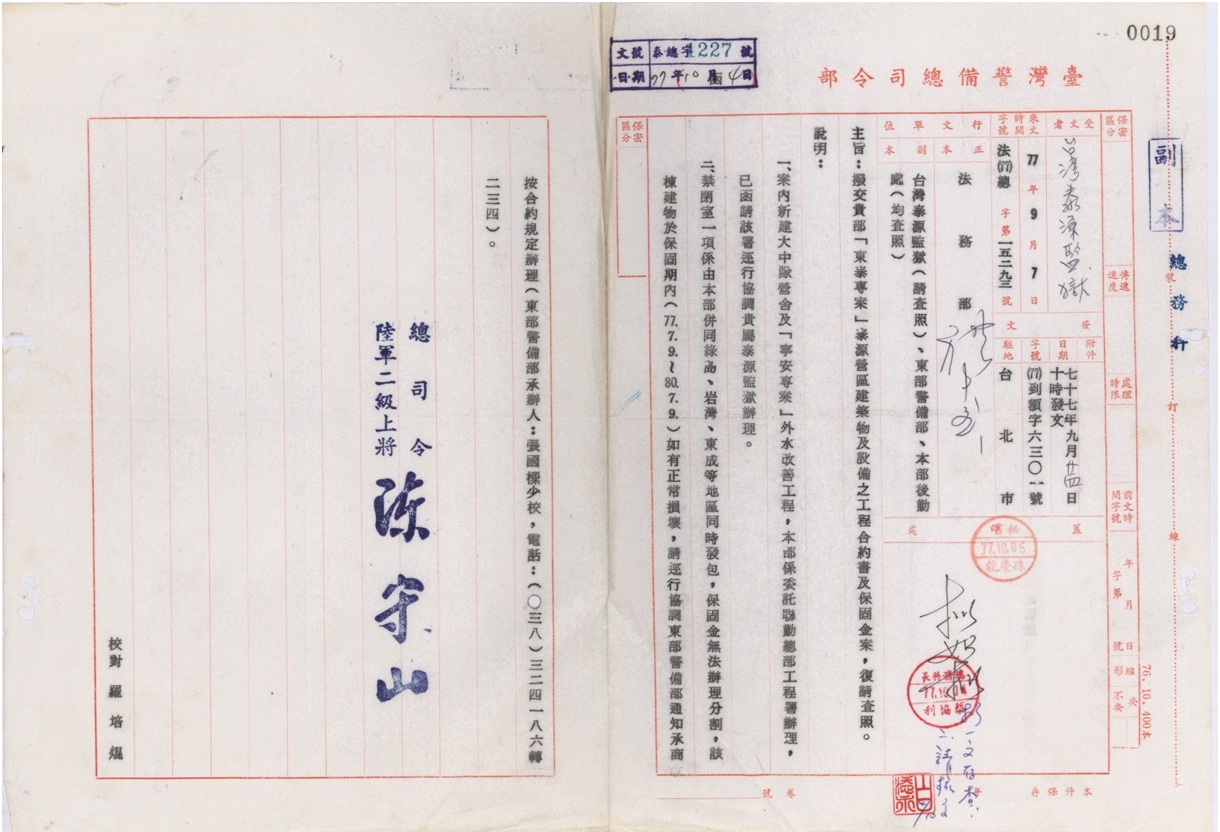 0019
文號 泰總字1227號
日期 77年10月4日
臺灣警備總司令部
副本
總務科
保密區分
傳遞速度
處理時限
前文時間字號
年 月 日
字第 號
受文者
台灣泰源監獄
來文時間字號
77年9月7日
法(77)總字第一五二九三號
附件
發文
日期
七十七年九月廿四日十時發文
字號
(77)到額字六三〇一號
駐地
台北市
行文單位
正本
法務部
副本
台灣泰源監獄(請查照)、東部警備部、本部後勤處(均查照)
主旨：撥交貴部「東泰專案」泰源營區建築物及設備之工程合約書及保固金案，復請查照。
說明：
一、案內新建大中隊營舍及「寧安專案」外水改善工程，本部係委託聯勤總部工程署辦理，
已函請該署逕行協調貴屬泰源監獄辦理。
二、禁閉室一項係由本部併同綠島、岩灣、東成等地區同時發包，保固金無法辦理分割，該
棟建物於保固期內(77.7.9.~80.7.9.)如有正常損壞，請逕行協調東部警備部通知承商
保密區分
按合約規定辦理(東部警備部承辦人：張國樑少校，電話：(〇三八)三二四一八六轉
二三四)。
總司令
陸軍二級上將
陳守山
校對 羅培焜
77.10.05
77.10.04
76.10.400本
訂線
本件保存
卷號